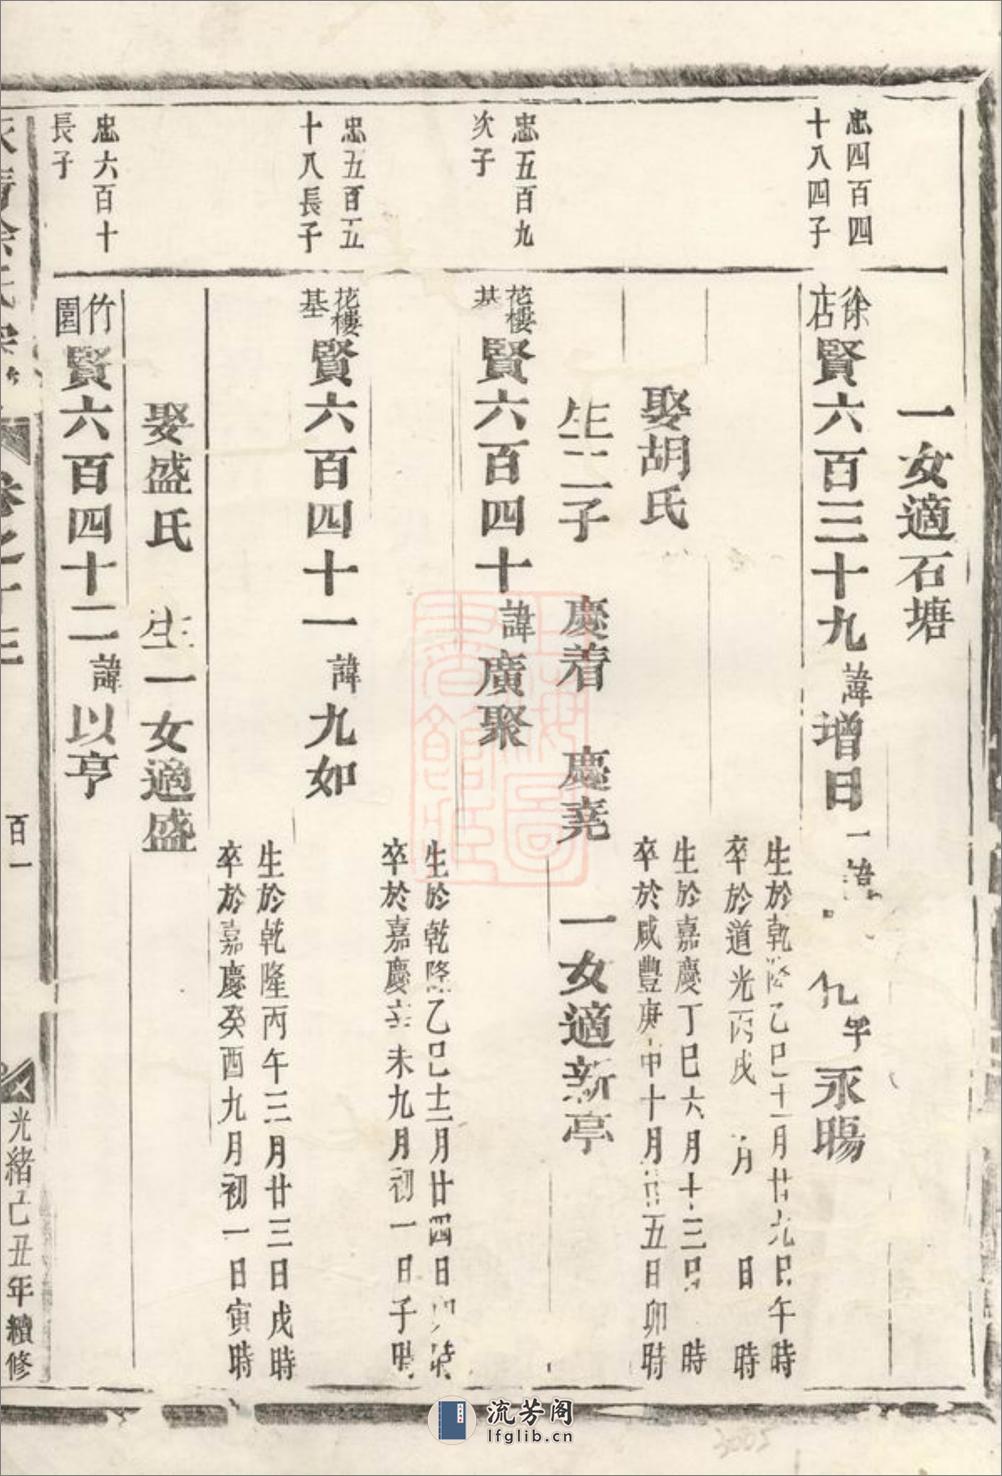 一女適石塘
忠四百四
十八四子
徐店
賢六百三十九諱增日一諱
永暘
生於乾隆乙巳十一月廿九日午時
卒於道光丙戌 月 日 時
娶胡氏
生於嘉慶丁巳六月十三日 時
卒於咸豐庚申十月廿五日卯時
生二子 慶着 慶堯 一女適新亭
忠五百九
次子
花樓基
賢六百四十諱廣聚
生於乾隆乙巳十二月廿四日 時
卒於嘉慶辛未九月初一日子時
忠五百五
十八長子
花樓基
賢六百四十一諱九如
生於乾隆丙午三月廿三日戌時
卒於嘉慶癸酉九月初一日寅時
娶盛氏 生一女適盛
忠六百十
長子
竹園
賢六百四十二諱以亨
徐氏宗
卷之十三
百一
光緒己丑年續修
流芳阁
lfglib.cn